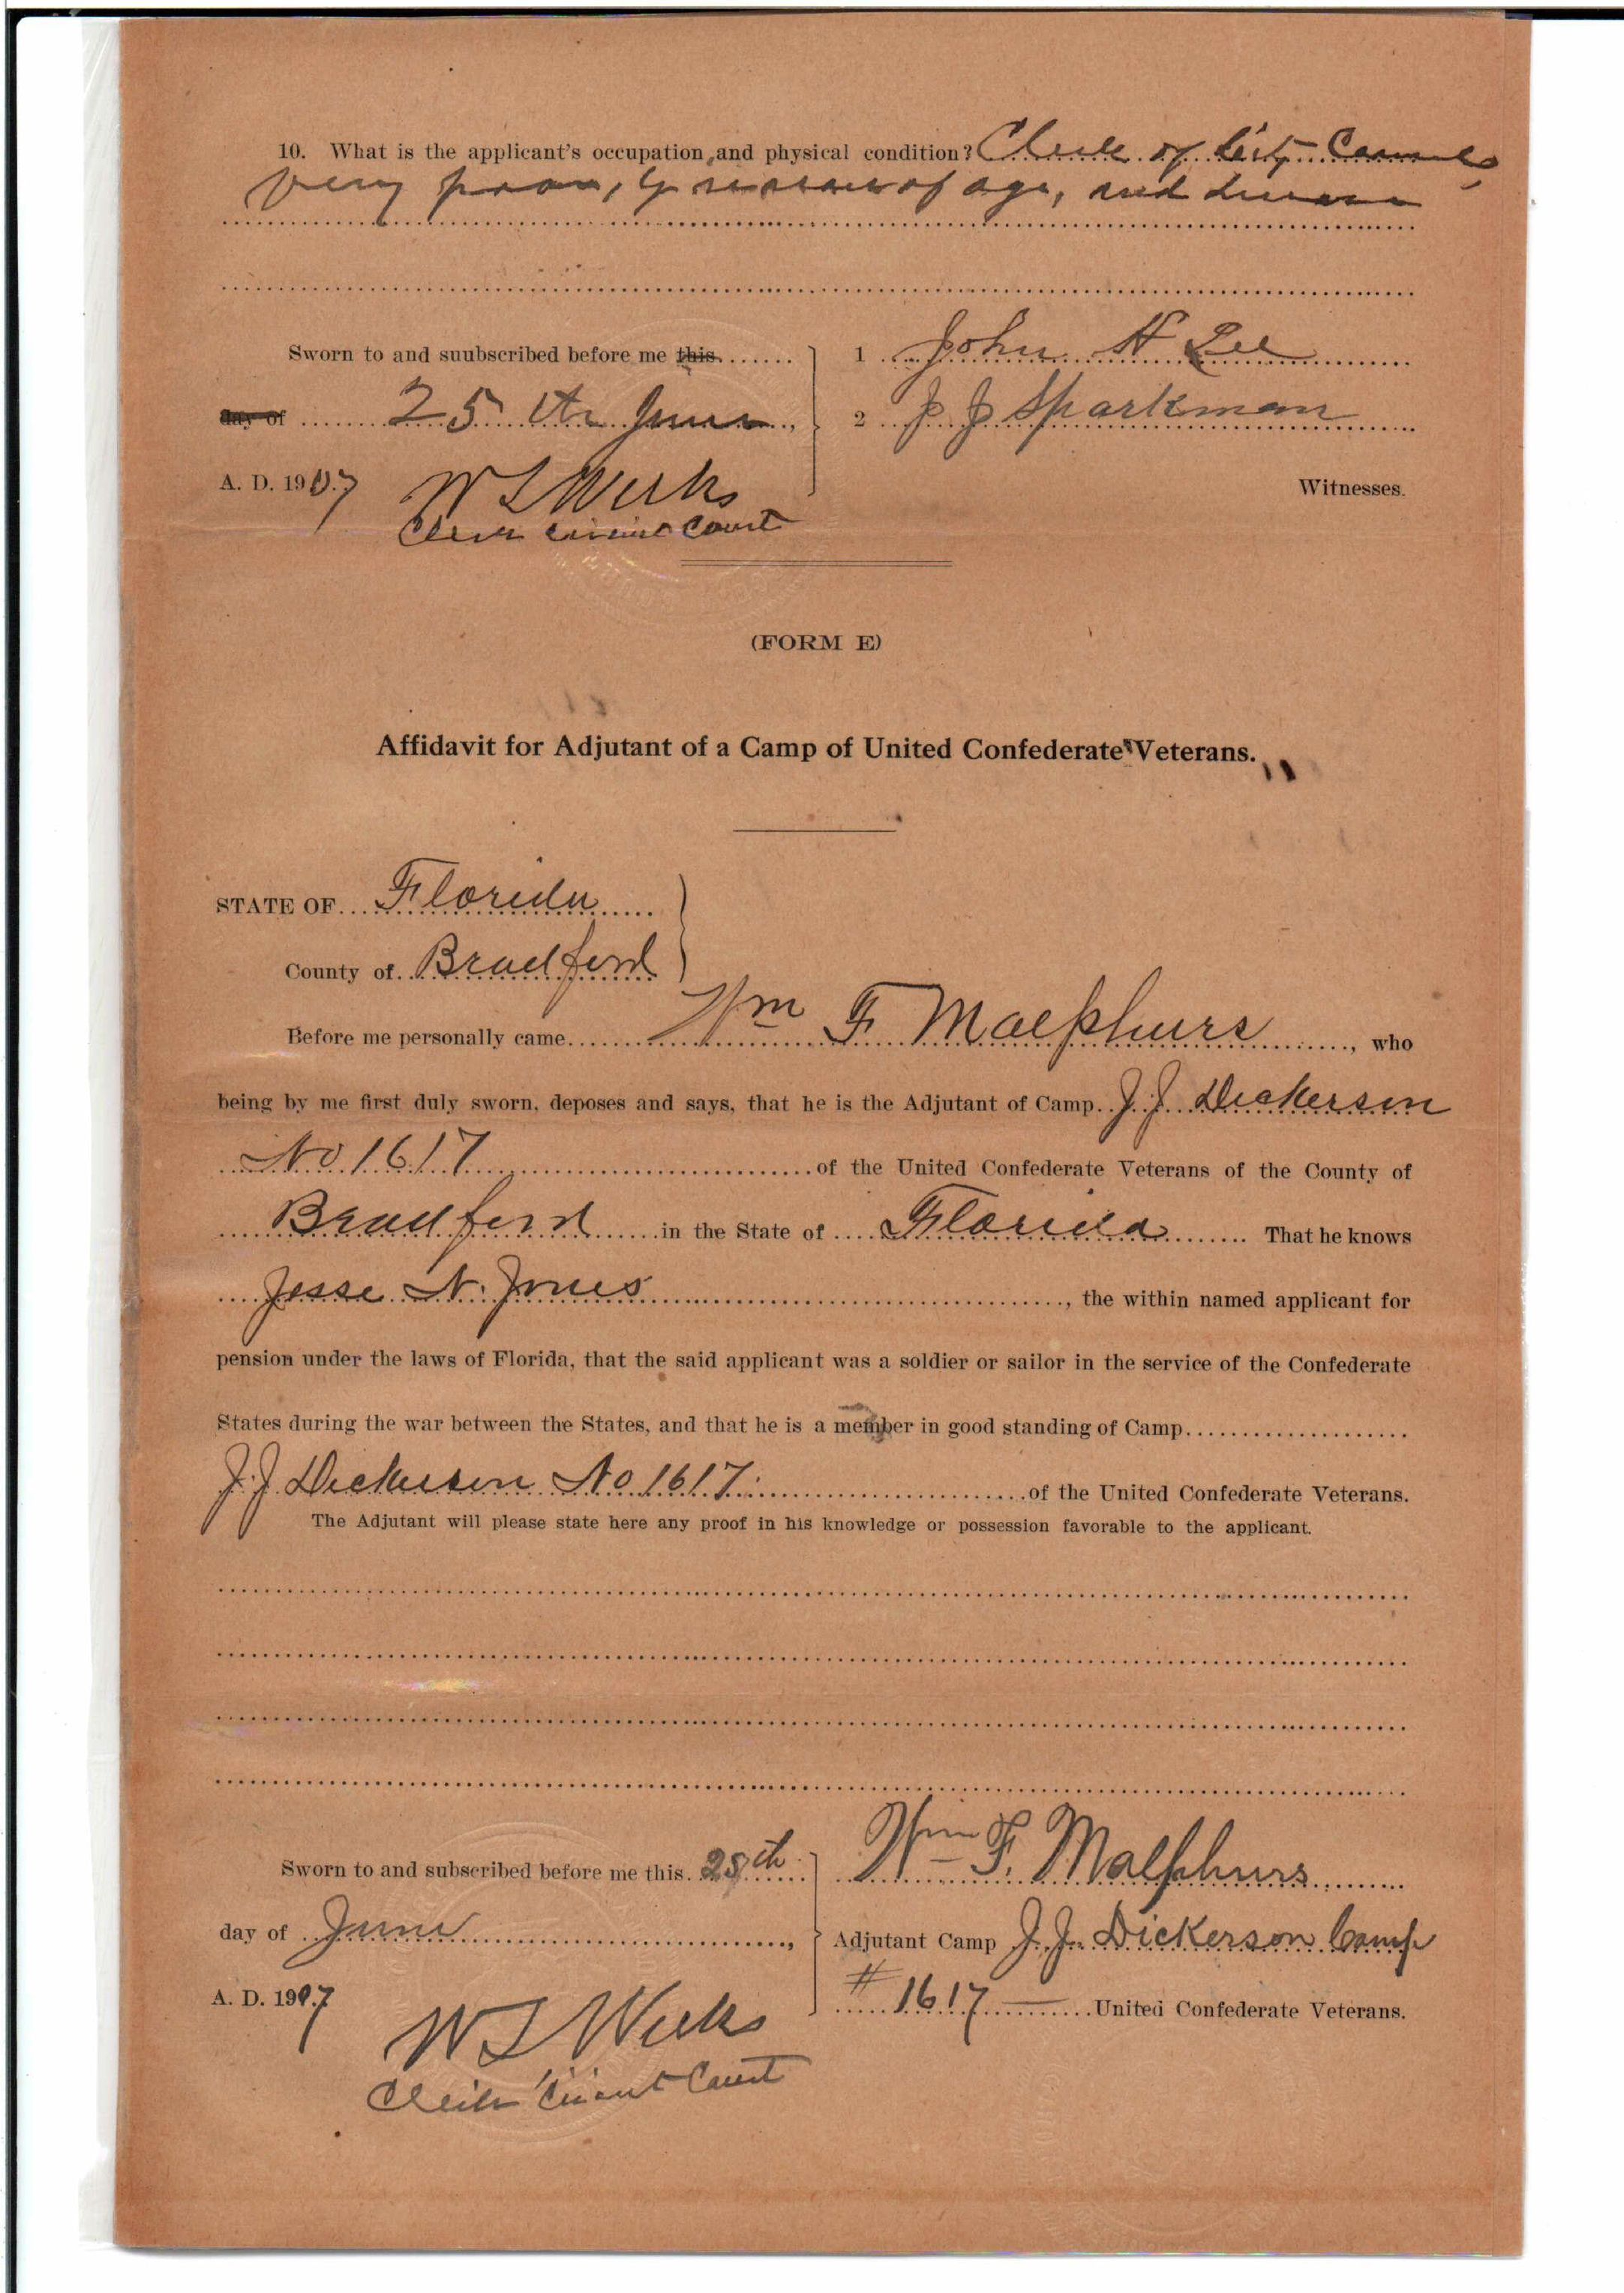 10. What is the applicant's occupation and physical condition? Clerk of City Council
very poor, by reason of age, and disease
Sworn to and suubscribed before me this
day of 25th June,
A. D. 1907
W L Weeks
Clerk Circuit Court
1 John N Lee
2 J J Sparkman
Witnesses.
(FORM E)
Affidavit for Adjutant of a Camp of United Confederate Veterans.
STATE OF Florida
County of Bradford
Before me personally came Wm F Malphurs, who
being by me first duly sworn, deposes and says, that he is the Adjutant of Camp J J Dickerson
No 1617 of the United Confederate Veterans of the County of
Bradford in the State of Florida. That he knows
Jesse N. Jones, the within named applicant for
pension under the laws of Florida, that the said applicant was a soldier or sailor in the service of the Confederate
States during the war between the States, and that he is a member in good standing of Camp
J. J. Dickerson No 1617 of the United Confederate Veterans.
The Adjutant will please state here any proof in his knowledge or possession favorable to the applicant.
Sworn to and subscribed before me this 25th
day of June,
A. D. 1907
W L Weeks
Clerk Circuit Court
Wm F. Malphurs
Adjutant Camp J. J. Dickerson Camp
# 1617 United Confederate Veterans.